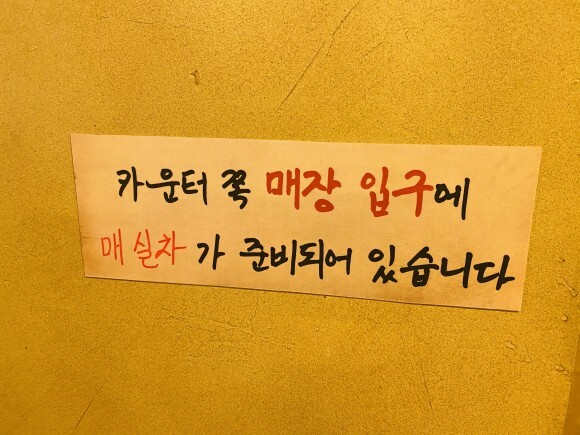 카운터 쪽 매장 입구에
매실차가 준비되어 있습니다